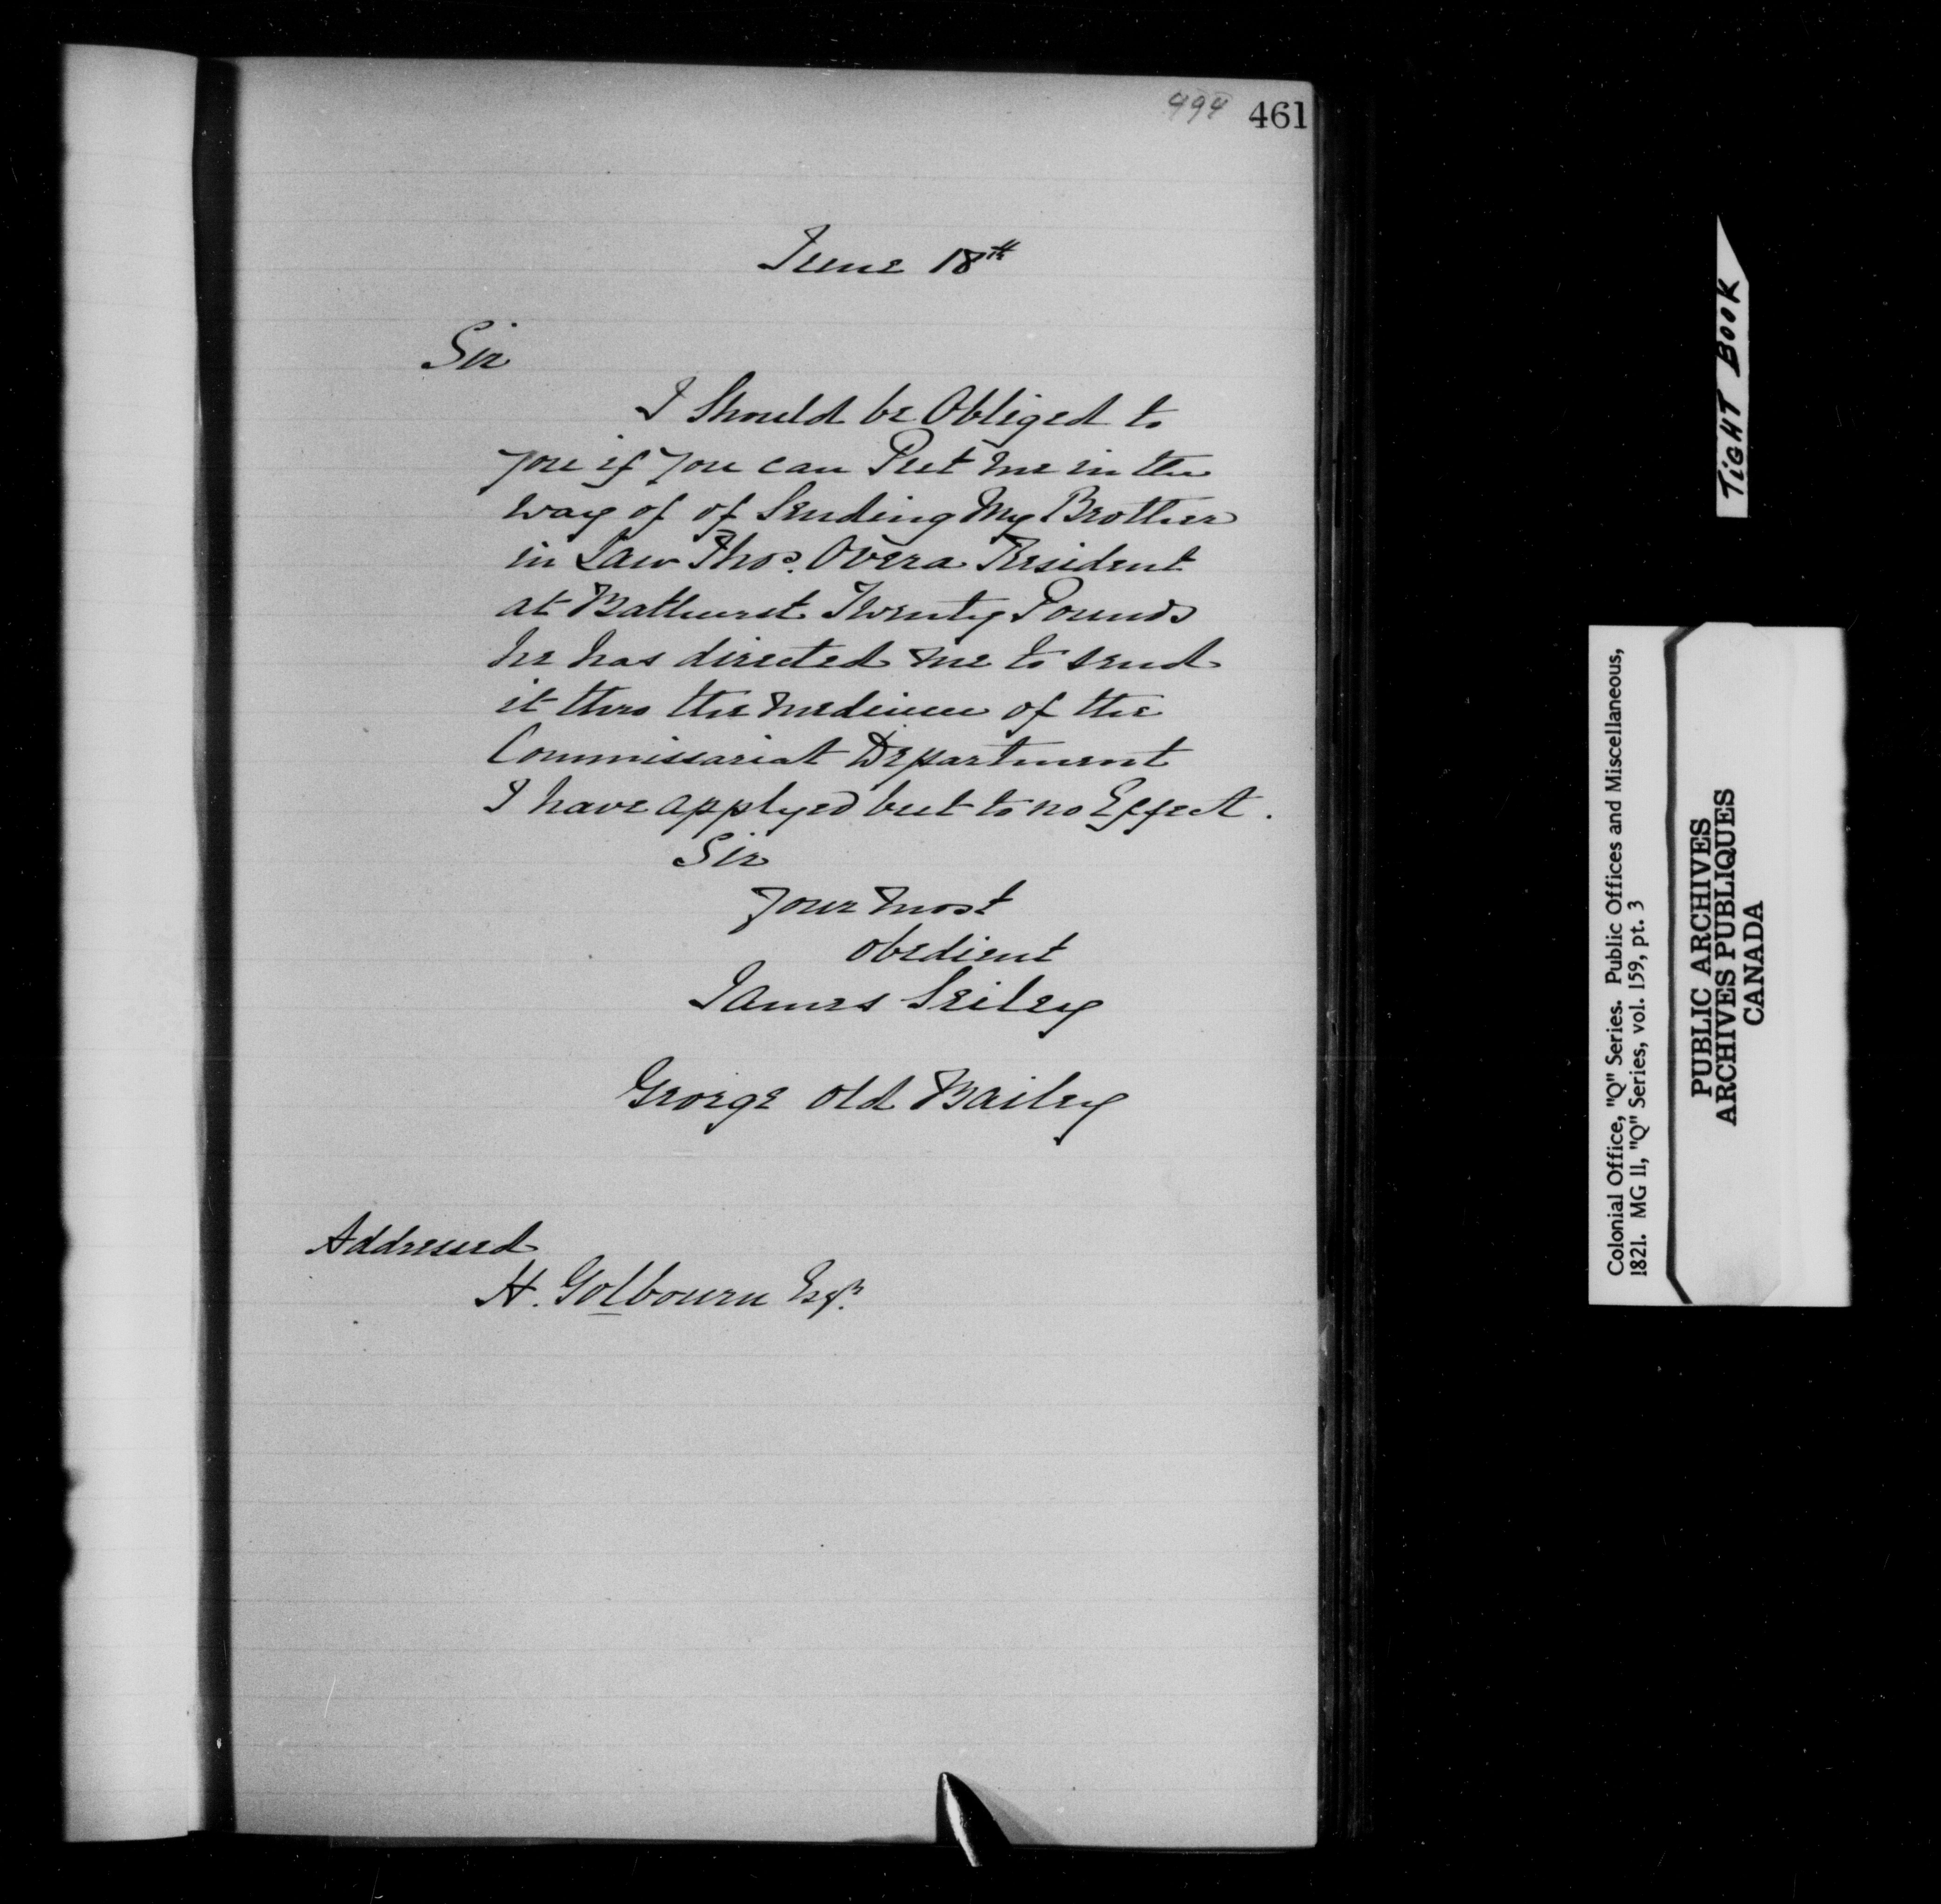 494 461
June 18th
Sir
I Should be Obliged to
you if you can Put me in the
way of of Sending My Brother
in Law Thos. Overa Resident
at Bathurst Twenty Pounds
he has directed me to send
it thro the medium of the
Commissariat Department
I have applyed but to no Effect.
Sir
Your most
obedient
James Seiley
George Old Bailey
Addressed
H. Golbourn Esqr.
TIGHT BOOK
Colonial Office, "Q" Series. Public Offices and Miscellaneous,
1821. MG 11, "Q" Series, vol. 159, pt. 3
PUBLIC ARCHIVES
ARCHIVES PUBLIQUES
CANADA